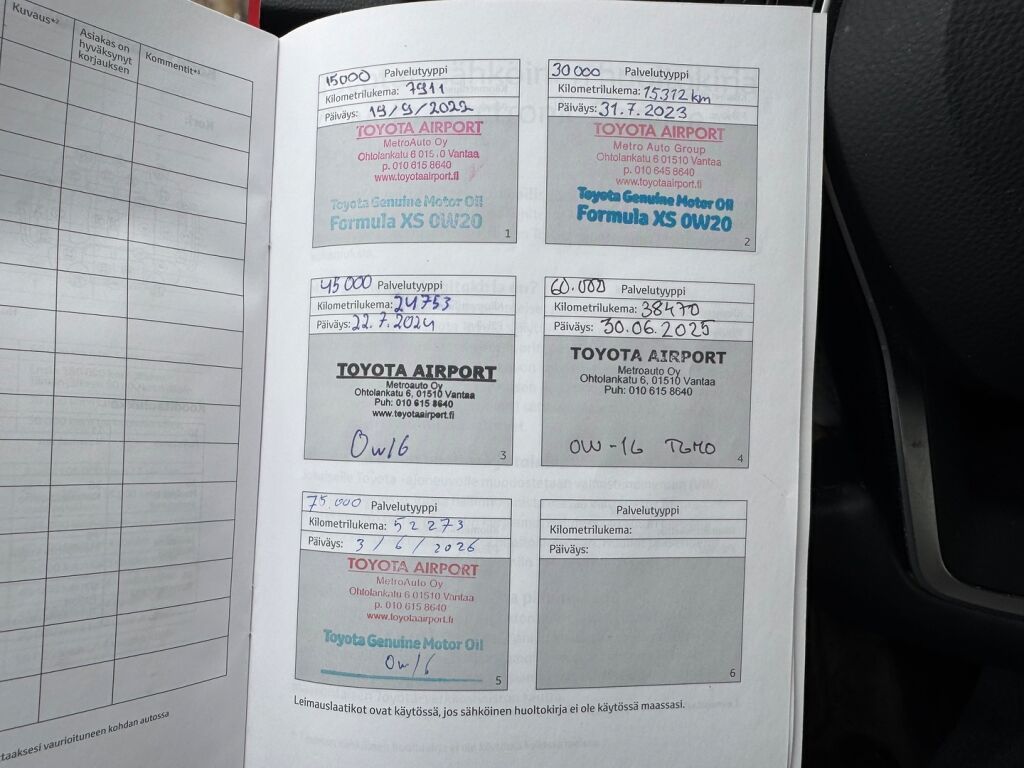 Kuvaus*²
Asiakas on
hyväksynyt
korjauksen
Kommentit*³
taaksesi vaurioituneen kohdan autossa
15000 Palvelutyyppi
Kilometrilukema: 7911
Päiväys: 19/9/2022
TOYOTA AIRPORT
MetroAuto Oy
Ohtolankatu 6 015.0 Vantaa
p. 010 615 8640
www.toyotaairport.fi
Toyota Genuine Motor Oil
Formula XS 0W20
1
30000 Palvelutyyppi
Kilometrilukema: 15312 km
Päiväys: 31.7.2023
TOYOTA AIRPORT
Metro Auto Group
Ohtolankatu 6 01510 Vantaa
p. 010 645 8640
www.toyotaairport.fi
Toyota Genuine Motor Oil
Formula XS 0W20
2
45000 Palvelutyyppi
Kilometrilukema: 24753
Päiväys: 22.7.2024
TOYOTA AIRPORT
Metroauto Oy
Ohtolankatu 6, 01510 Vantaa
Puh: 010 615 8640
www.toyotaairport.fi
0w16
3
60.000 Palvelutyyppi
Kilometrilukema: 38470
Päiväys: 30.06.2025
TOYOTA AIRPORT
Metroauto Oy
Ohtolankatu 6, 01510 Vantaa
Puh: 010 615 8640
0W-16
4
75.000 Palvelutyyppi
Kilometrilukema: 52273
Päiväys: 3/6/2026
TOYOTA AIRPORT
MetroAuto Oy
Ohtolankatu 6 01510 Vantaa
p. 010 615 8640
www.toyotaairport.fi
Toyota Genuine Motor Oil
0w16
5
Palvelutyyppi
Kilometrilukema:
Päiväys:
6
Leimauslaatikot ovat käytössä, jos sähköinen huoltokirja ei ole käytössä maassasi.